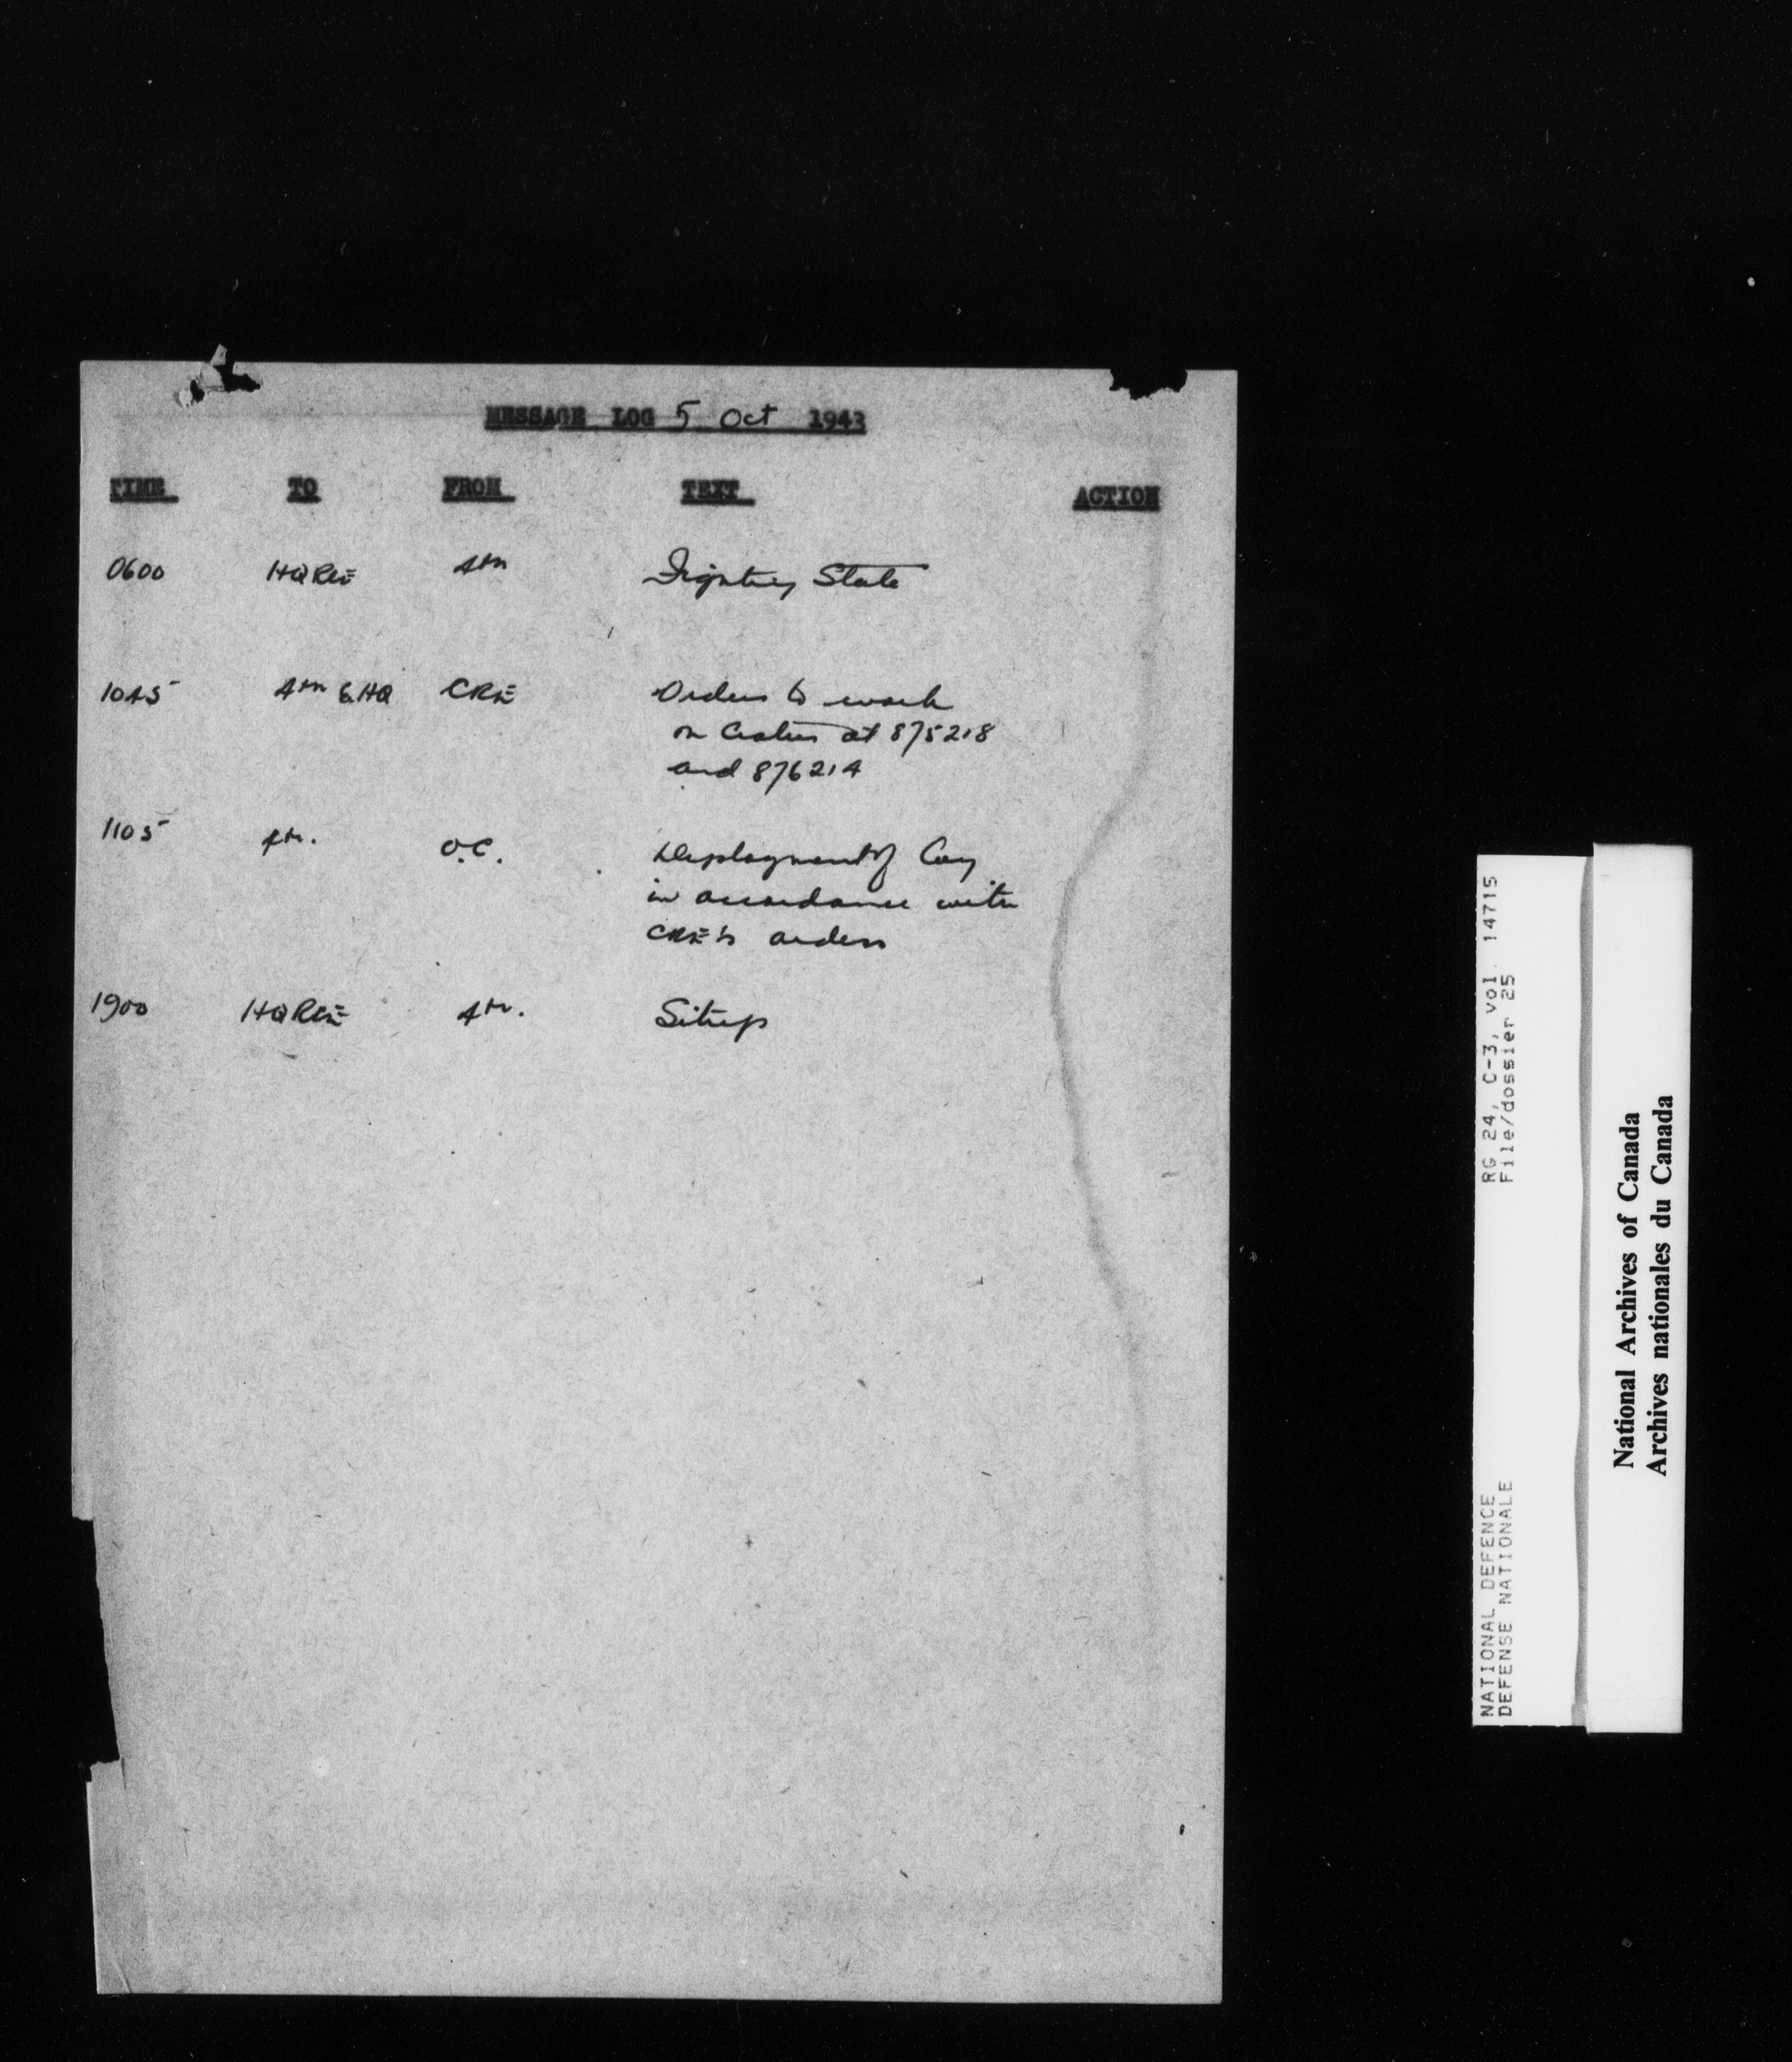 MESSAGE LOG 5 Oct 1943
TIME TO FROM TEXT ACTION
0600 HQRCE 4th Fighting State
1045 4th & HQ CRE Orders to work
on Craters at 875218
and 876214
1105 4th. O.C. Deployment of Coy
in accordance with
CRE's orders
1900 HQRCE 4th. Sitrep
RG 24, C-3, vol. 14715
File/dossier 25
NATIONAL DEFENCE
DEFENSE NATIONALE
National Archives of Canada
Archives nationales du Canada